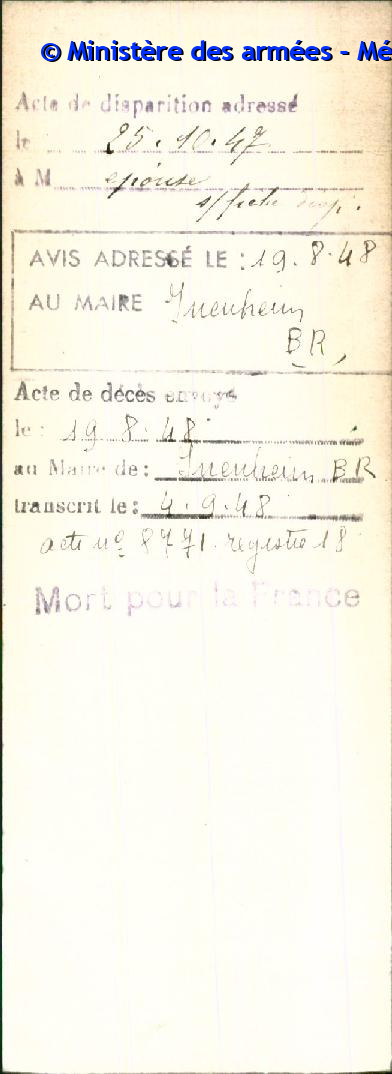 © Ministère des armées - Mé
Acte de disparition adressé
le 25.10.47
à M épouse
s/fiche disp.
AVIS ADRESSÉ LE : 19.8.48
AU MAIRE Inenheim
BR,
Acte de décès envoyé
le : 19 8.48
au Maire de : Inenheim BR
transcrit le : 4.9.48
acte nº 8771. registre 18
Mort pour la France